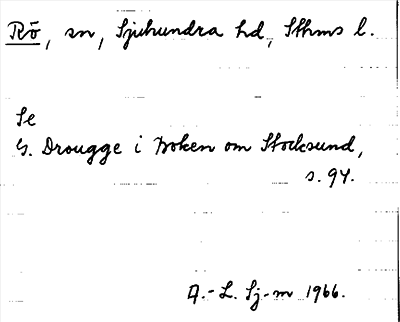 Rö, sn, Sjuhundra hd, Sthms l.
Se
G. Drougge i Boken om Stocksund,
s. 94.
A.-L. Sj-m 1966.